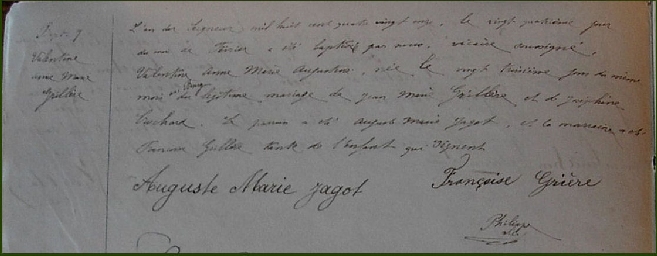 Valentine
Anne Marie
Grillère
L'an du Seigneur mil huit cent quatre vingt onze, le vingt quatrième jour
du mois de Février a été baptisée par nous, vicaire soussigné,
Valentine Anne Marie Augustine, née le vingt troisième jour du même
mois du légitime mariage de Jean Marie Grillère et de Joséphine
Le parrain a été Auguste Marie Jagot, et la marraine a été
Grillère tante de l'enfant qui signent
Auguste Marie Jagot
Françoise Grière
Philippe